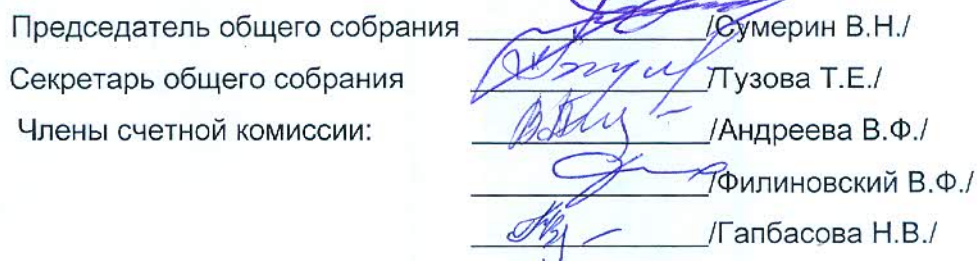 Председатель общего собрания /Сумерин В.Н./
Секретарь общего собрания /Тузова Т.Е./
Члены счетной комиссии: /Андреева В.Ф./
/Филиновский В.Ф./
/Гапбасова Н.В./